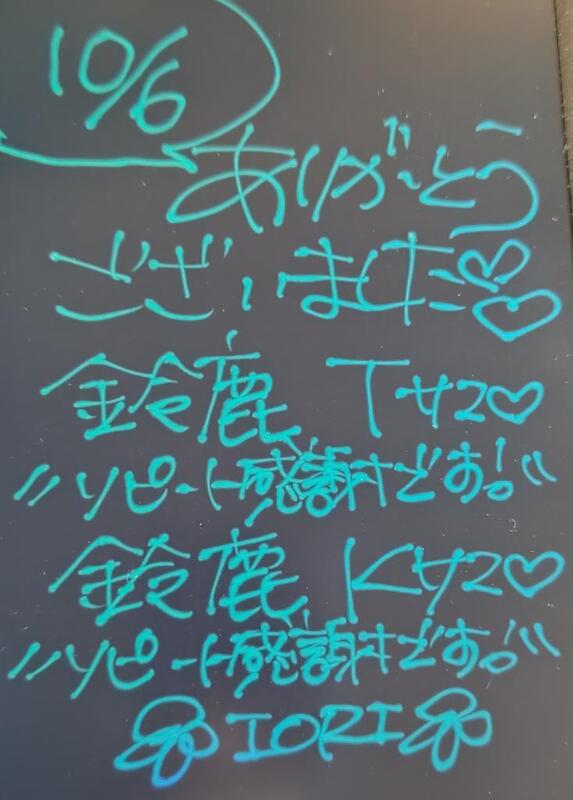 10/6
ありがとう
ございました♡♡
鈴鹿 Tサマ♡
〃リピート感謝です!!〃
鈴鹿 Kサマ♡
〃リピート感謝です!!〃
IORI